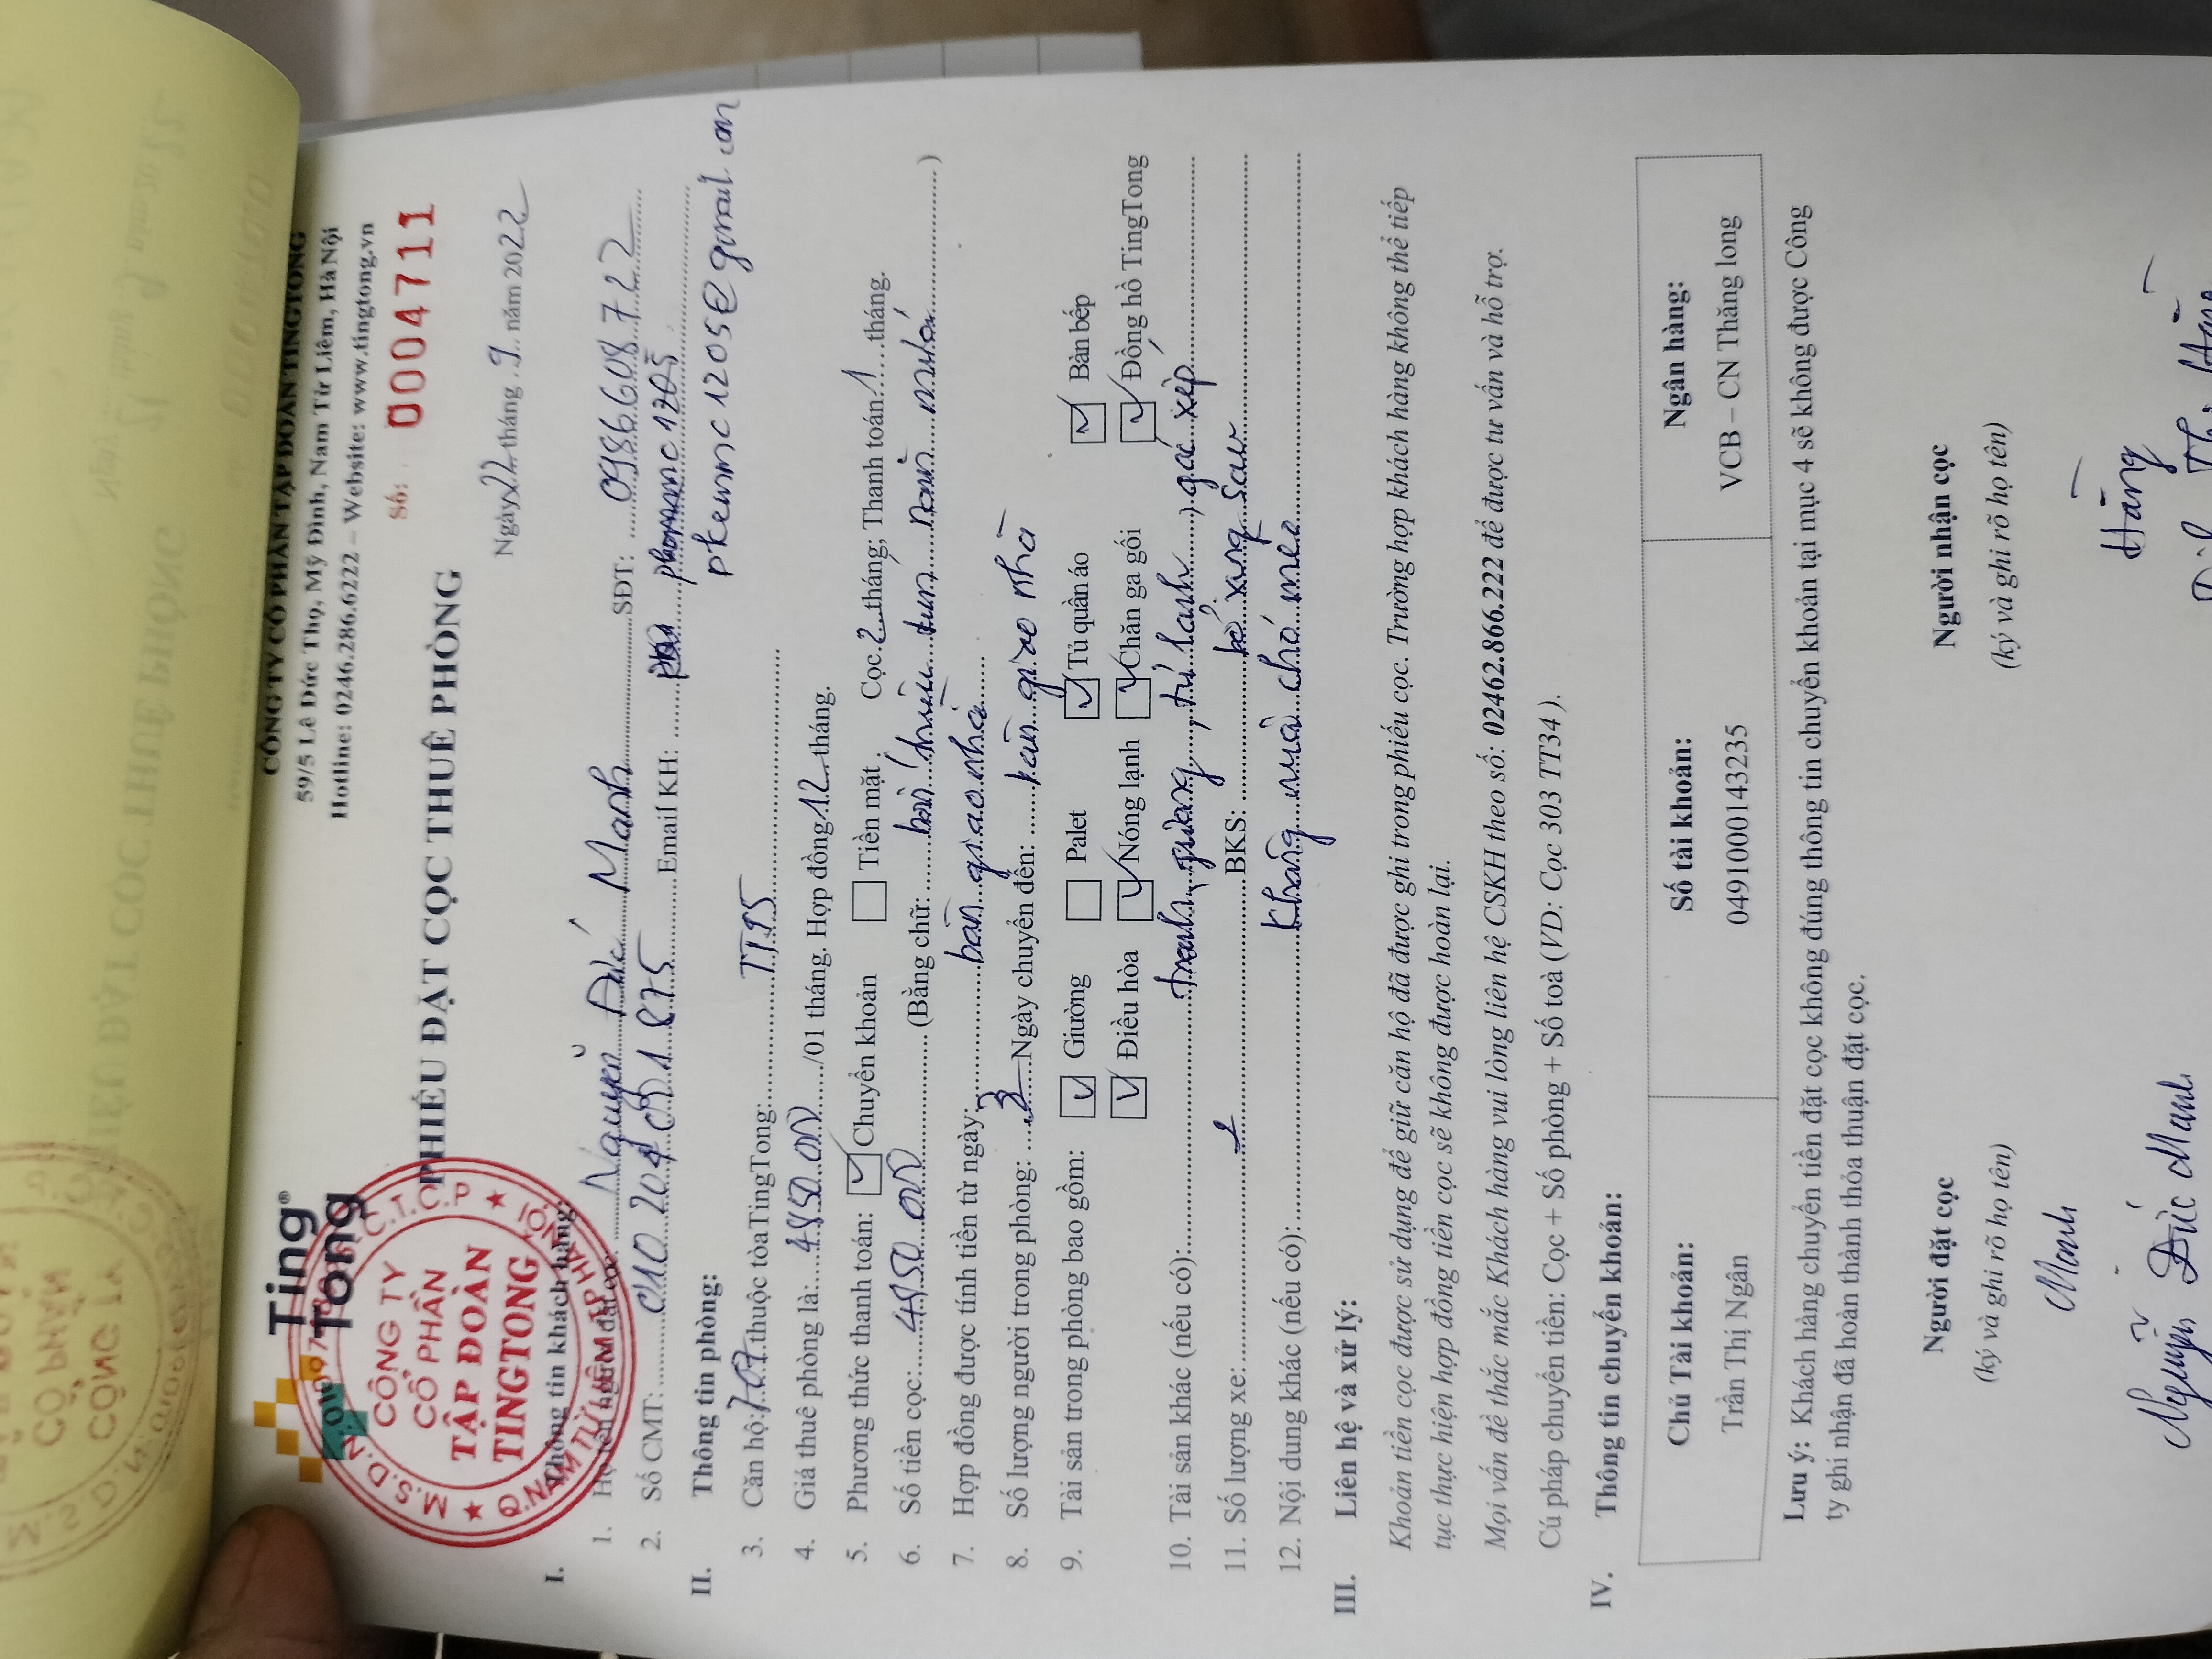 Ting
Tong
CÔNG TY CỔ PHẦN TẬP ĐOÀN TINGTONG
59/5 Lê Đức Thọ, Mỹ Đình, Nam Từ Liêm, Hà Nội
Hotline: 0246.286.6222 – Website: www.tingtong.vn
Số: 0004711
PHIẾU ĐẶT CỌC THUÊ PHÒNG
CÔNG TY
CỔ PHẦN
TẬP ĐOÀN
TINGTONG
Ngày 22 tháng 9 năm 2022
I. Thông tin khách hàng:
1. Họ tên người đặt cọc: Nguyễn Đức Mạnh SĐT: 0986608722
2. Số CMT: Email KH:
pkeumc1205@gmail.com
II. Thông tin phòng:
3. Căn hộ: 707 thuộc tòa TingTong: TT95
4. Giá thuê phòng là: /01 tháng. Hợp đồng 12 tháng. Cọc 2 tháng; Thanh toán 1 tháng.
5. Phương thức thanh toán: Chuyển khoản Tiền mặt
6. Số tiền cọc: (Bằng chữ: )
7. Hợp đồng được tính tiền từ ngày: bàn giao nhà
8. Số lượng người trong phòng: 3 Ngày chuyển đến: bàn giao nhà
9. Tài sản trong phòng bao gồm: Giường Palet Tủ quần áo Bàn bếp
Điều hòa Nóng lạnh Chăn ga gối Đồng hồ TingTong
10. Tài sản khác (nếu có): tranh, gương, tủ lạnh, gác xép
11. Số lượng xe: BKS: bổ xung sau
12. Nội dung khác (nếu có): Không nuôi chó mèo
III. Liên hệ và xử lý:
Khoản tiền cọc được sử dụng để giữ căn hộ đã được ghi trong phiếu cọc. Trường hợp khách hàng không thể tiếp
tục thực hiện hợp đồng tiền cọc sẽ không được hoàn lại.
Mọi vấn đề thắc mắc Khách hàng vui lòng liên hệ CSKH theo số: 02462.866.222 để được tư vấn và hỗ trợ.
Cú pháp chuyển tiền: Cọc + Số phòng + Số toà (VD: Cọc 303 TT34).
IV. Thông tin chuyển khoản:
Chủ Tài khoản: Số tài khoản: Ngân hàng:
Trần Thị Ngân 0491000143235 VCB – CN Thăng long
Lưu ý: Khách hàng chuyển tiền đặt cọc không đúng thông tin chuyển khoản tại mục 4 sẽ không được Công
ty ghi nhận đã hoàn thành thỏa thuận đặt cọc.
Người đặt cọc Người nhận cọc
(ký và ghi rõ họ tên) (ký và ghi rõ họ tên)
Mạnh Hằng
Nguyễn Đức Mạnh